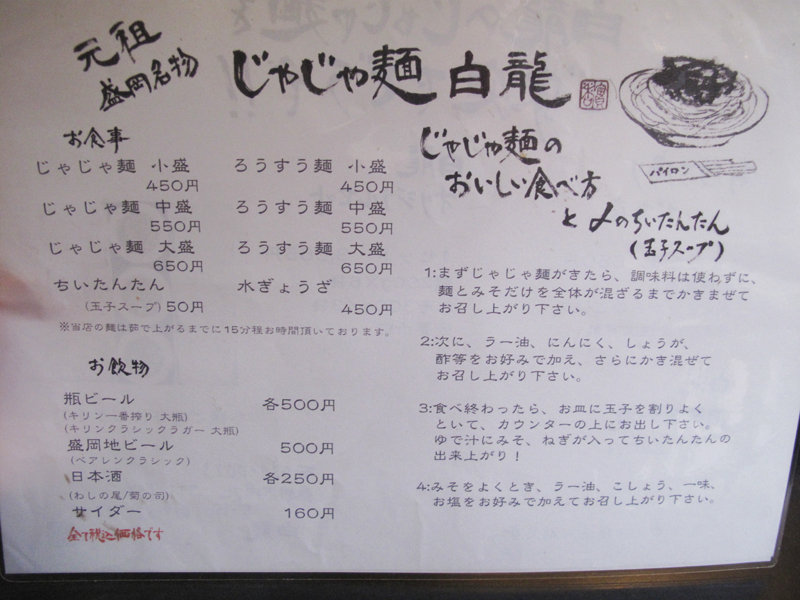 元祖
盛岡名物
じゃじゃ麺 白龍
お食事
じゃじゃ麺 小盛
450円
じゃじゃ麺 中盛
550円
じゃじゃ麺 大盛
650円
ちいたんたん
(玉子スープ) 50円
ろうすう麺 小盛
450円
ろうすう麺 中盛
550円
ろうすう麺 大盛
650円
水ぎょうざ
450円
※当店の麺は茹で上がるまでに15分程お時間頂いております。
お飲物
瓶ビール 各500円
(キリン一番搾り 大瓶)
(キリンクラシックラガー 大瓶)
盛岡地ビール 500円
(ベアレンクラシック)
日本酒 各250円
(わしの尾/菊の司)
サイダー 160円
全て税込価格です
パイロン
じゃじゃ麺の
おいしい食べ方
と〆のちいたんたん
(玉子スープ)
1:まずじゃじゃ麺がきたら、調味料は使わずに、
麺とみそだけを全体が混ざるまでかきまぜて
お召し上がり下さい。
2:次に、ラー油、にんにく、しょうが、
酢等をお好みで加え、さらにかき混ぜて
お召し上がり下さい。
3:食べ終わったら、お皿に玉子を割りよく
といて、カウンターの上にお出し下さい。
ゆで汁にみそ、ねぎが入ってちいたんたんの
出来上がり!
4:みそをよくとき、ラー油、こしょう、一味、
お塩をお好みで加えてお召し上がり下さい。